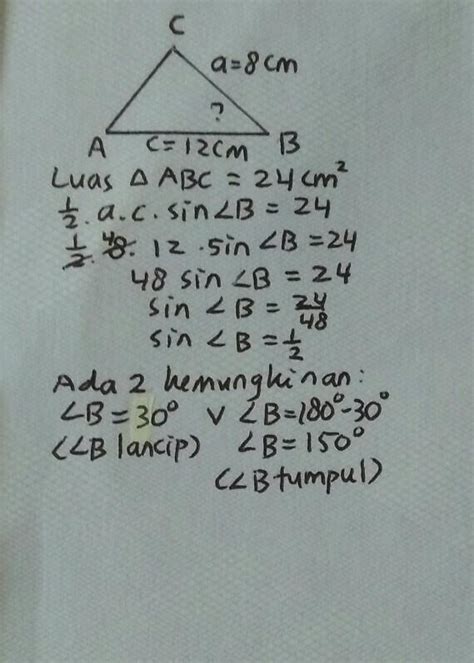 C
a=8cm
?
A C=12cm B
Luas Δ ABC = 24 cm²
½. a.c. sin∠B = 24
½. 8. 4 12 . sin ∠B = 24
48 sin ∠B = 24
sin ∠B = 24/48
sin ∠B = ½
Ada 2 kemungkinan:
∠B = 30° ∨ ∠B=180°-30°
(∠B lancip) ∠B = 150°
(∠B tumpul)